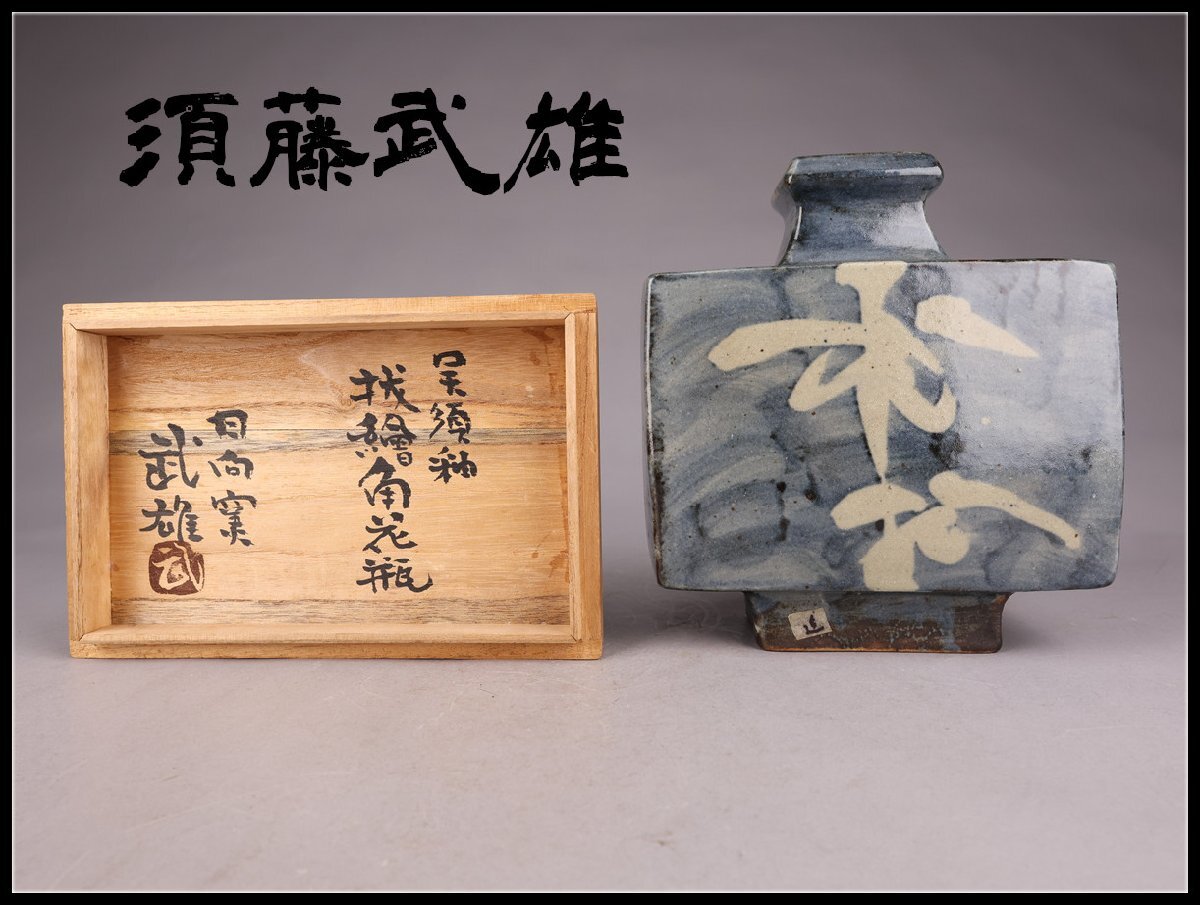 須藤武雄
呉須釉
抜繪角花瓶
日向窯
武雄
武